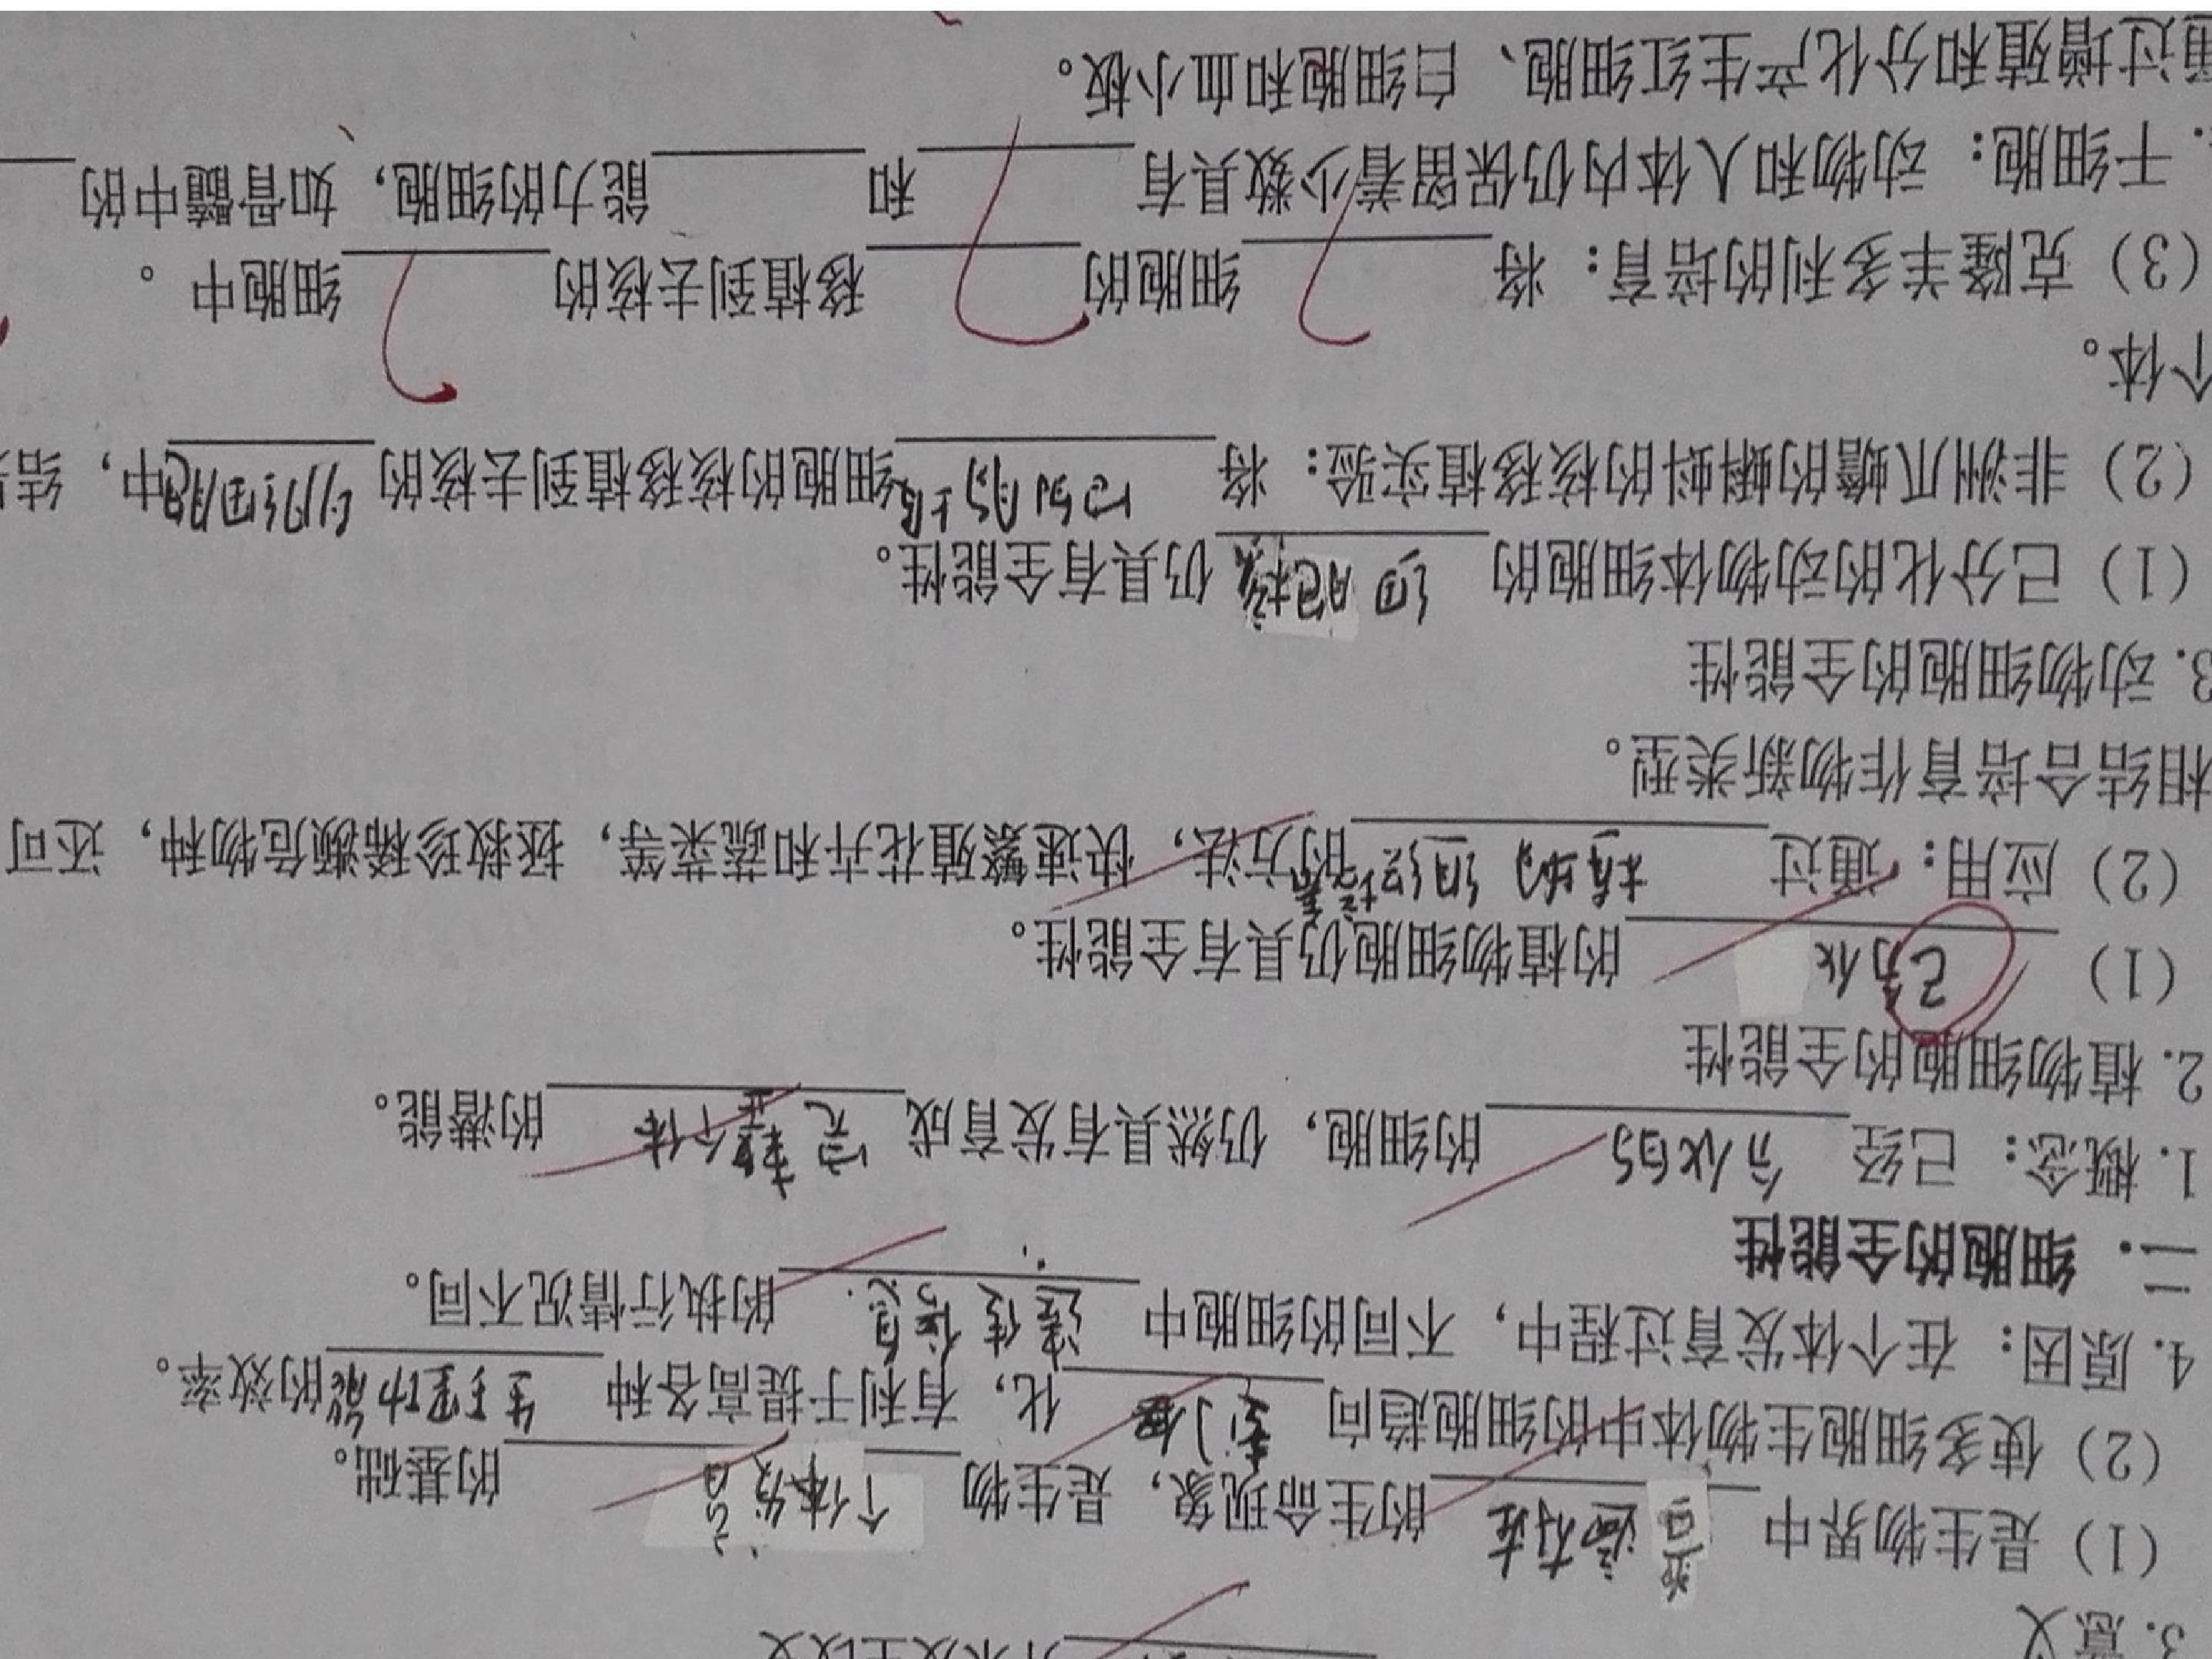 3. 意义
(1) 是生物界中普遍存在的生命现象，是生物个体发育的基础。
(2) 使多细胞生物体中的细胞趋向专门化，有利于提高各种生理功能的效率。
4. 原因：在个体发育过程中，不同的细胞中遗传信息的执行情况不同。
二. 细胞的全能性
1. 概念：已经分化的的细胞，仍然具有发育成完整个体的潜能。
2. 植物细胞的全能性
(1) 已分化的植物细胞仍具有全能性。
(2) 应用：通过植物组织培养的方法，快速繁殖花卉和蔬菜等，拯救珍稀濒危物种，还可
相结合培育作物新类型。
3. 动物细胞的全能性
(1) 已分化的动物体细胞的细胞核仍具有全能性。
(2) 非洲爪蟾的蝌蚪的核移植实验：将细胞的核移植到去核的卵细胞中，结
个体。
(3) 克隆羊多利的培育：将 细胞的 移植到去核的 细胞中。
干细胞：动物和人体内仍保留着少数具有 和 能力的细胞，如骨髓中的
通过增殖和分化产生红细胞、白细胞和血小板。